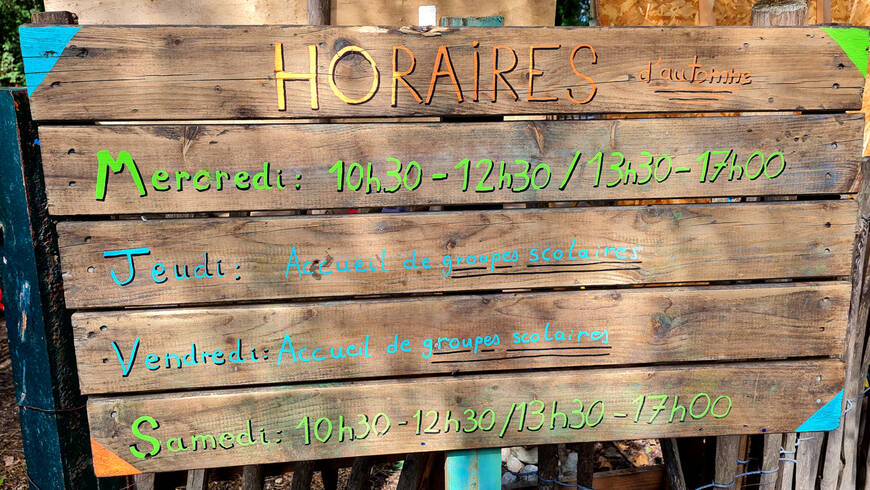 HORAIRES d'automne
Mercredi: 10h30-12h30/13h30-17h00
Jeudi: Accueil de groupes scolaires
Vendredi: Accueil de groupes scolaires
Samedi: 10h30-12h30/13h30-17h00